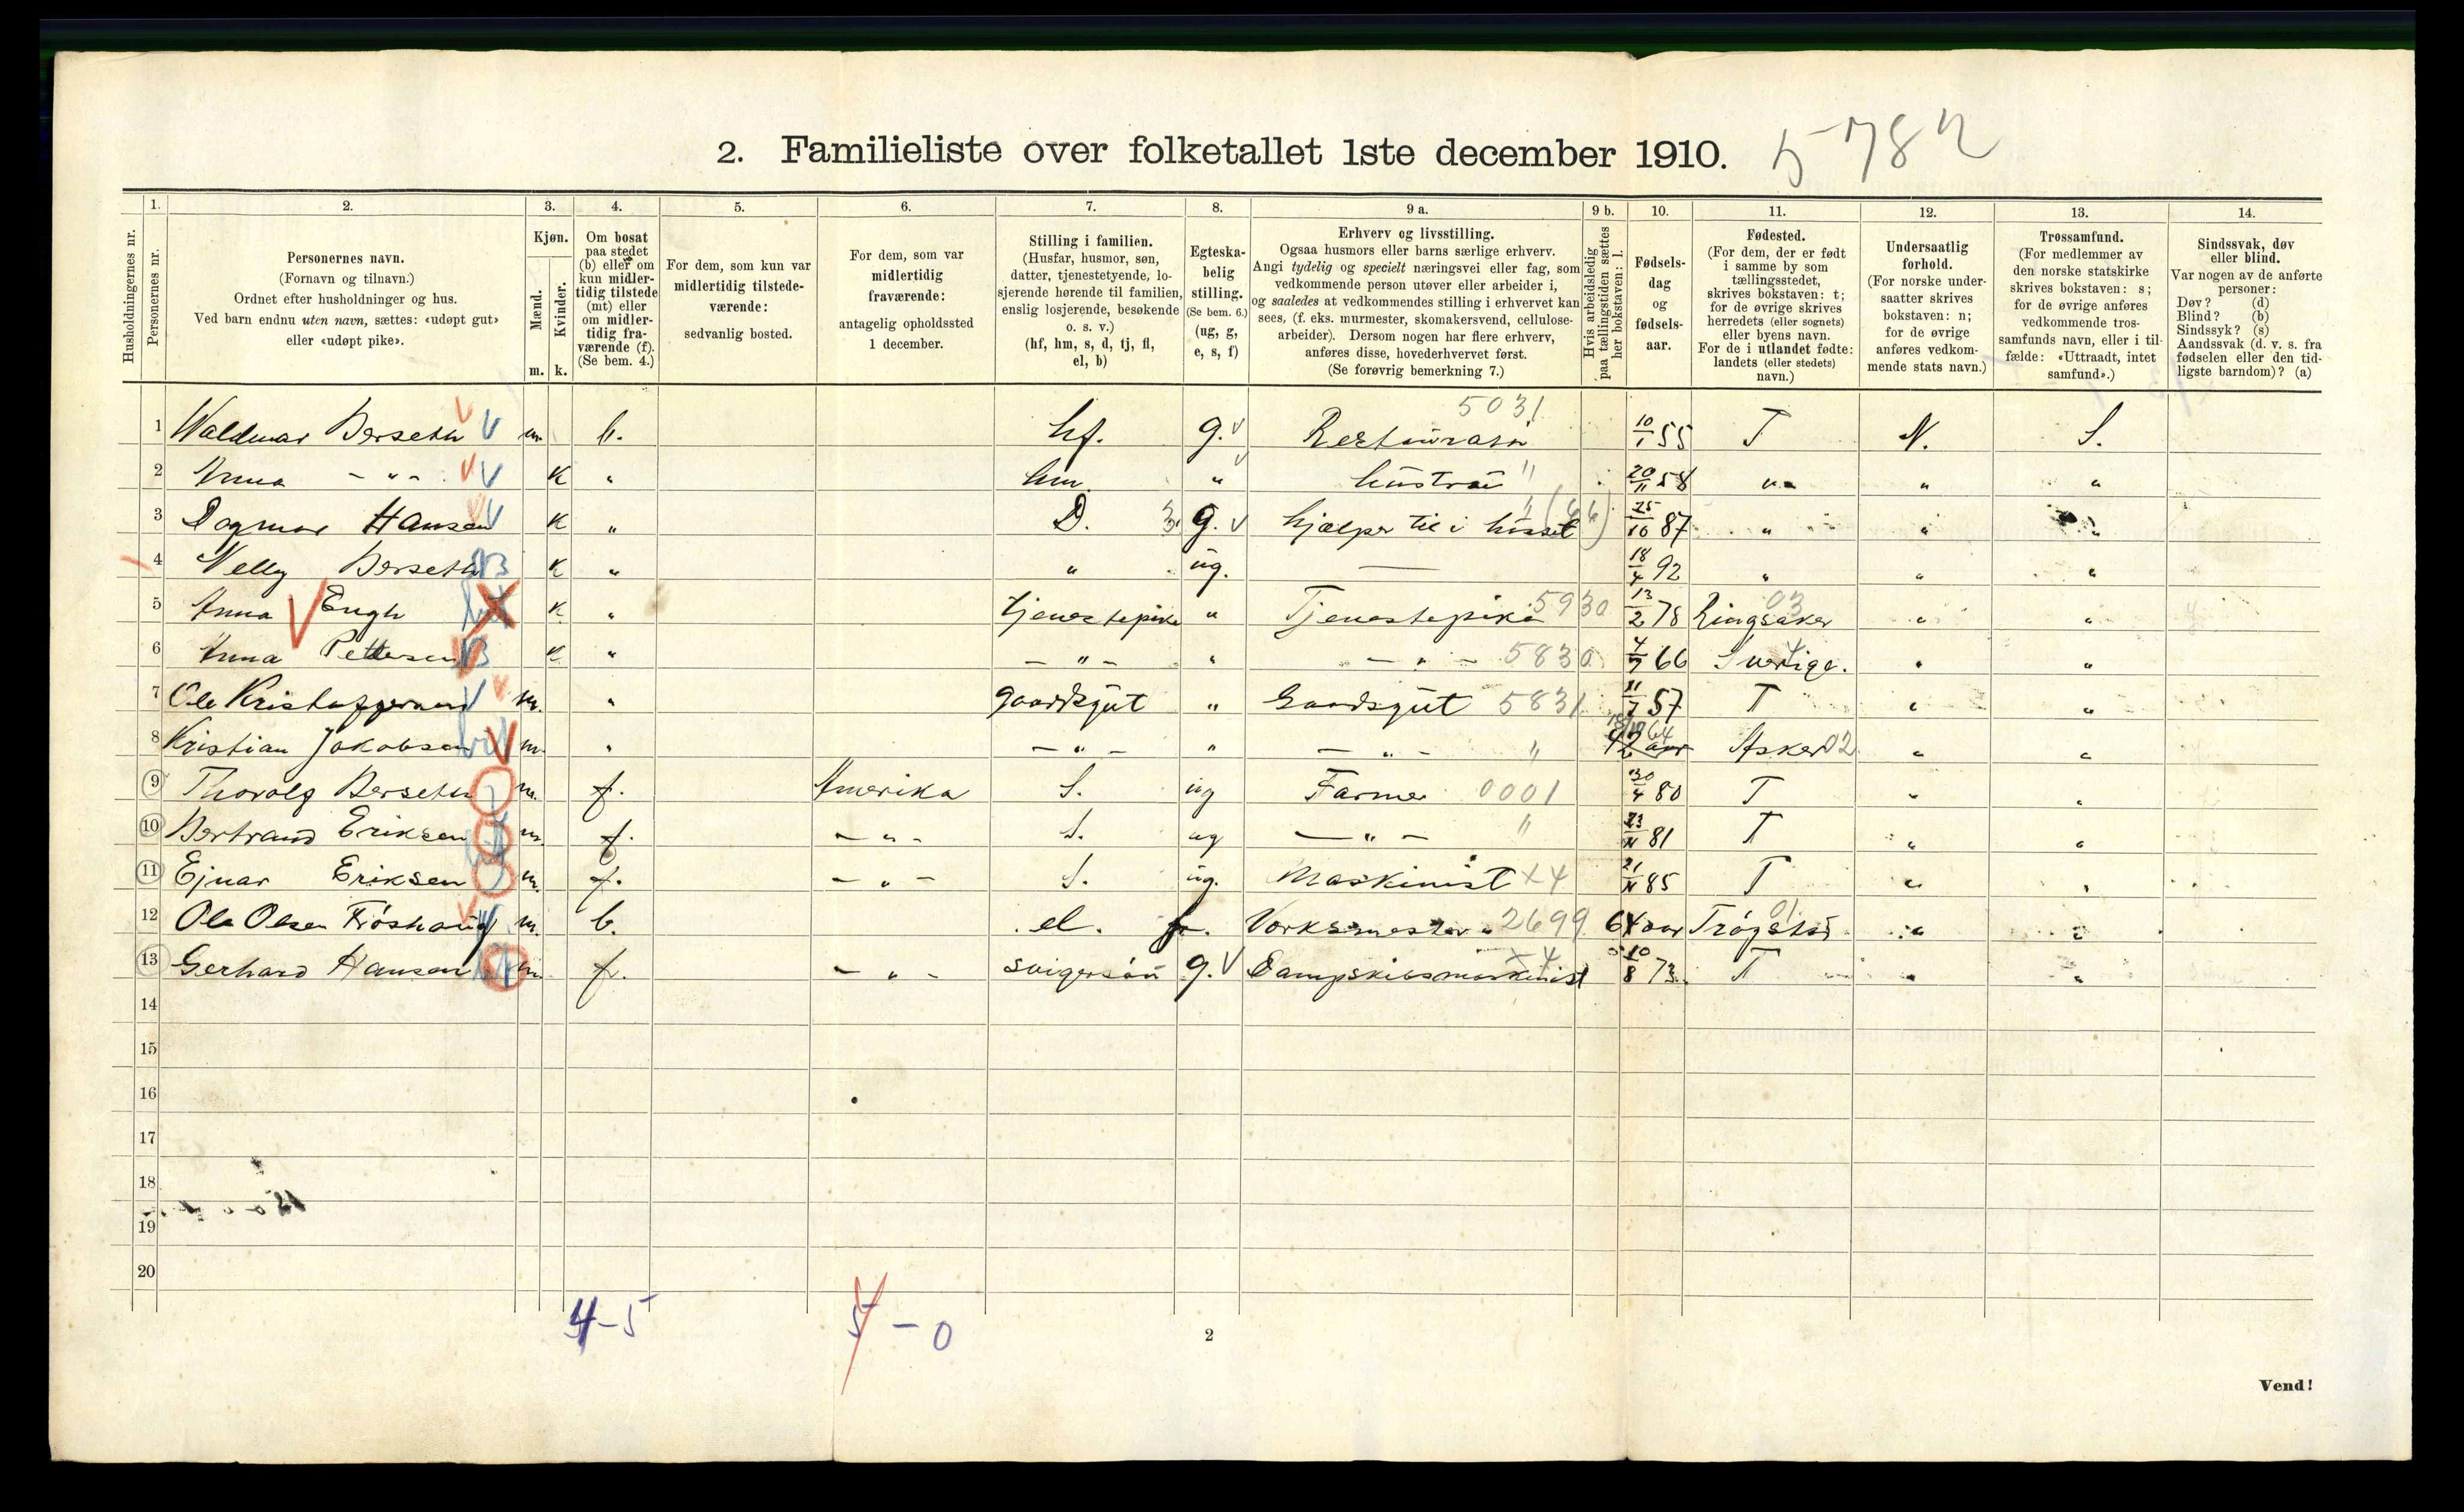 2. Familieliste over folketallet 1ste december 1910. 5782
Husholdningernes nr.
1. Personernes nr.
2. Personernes navn.
(Fornavn og tilnavn.)
Ordnet efter husholdninger og hus.
Ved barn endnu uten navn, sættes: «udøpt gut»
eller «udøpt pike».
3. Kjøn.
Mænd. m.
Kvinder. k.
4. Om bosat
paa stedet
(b) eller om
kun midler-
tidig tilstede
(mt) eller
om midler-
tidig fra-
værende (f).
(Se bem. 4.)
5. For dem, som kun var
midlertidig tilstede-
værende:
sedvanlig bosted.
6. For dem, som var
midlertidig
fraværende:
antagelig opholdssted
1 december.
7. Stilling i familien.
(Husfar, husmor, søn,
datter, tjenestetyende, lo-
sjerende hørende til familien,
enslig losjerende, besøkende
o. s. v.)
(hf, hm, s, d, tj, fl,
el, b)
8. Egteska-
belig
stilling.
(Se bem. 6.)
(ug, g,
e, s, f)
9 a. Erhverv og livsstilling.
Ogsaa husmors eller barns særlige erhverv.
Angi tydelig og specielt næringsvei eller fag, som
vedkommende person utøver eller arbeider i,
og saaledes at vedkommendes stilling i erhvervet kan
sees, (f. eks. murmester, skomakersvend, cellulose-
arbeider). Dersom nogen har flere erhverv,
anføres disse, hovederhvervet først.
(Se forøvrig bemerkning 7.)
9 b. Hvis arbeidsledig
paa tællingstiden sættes
her bokstaven: l.
10. Fødsels-
dag
og
fødsels-
aar.
11. Fødested.
(For dem, der er født
i samme by som
tællingsstedet,
skrives bokstaven: t;
for de øvrige skrives
herredets (eller sognets)
eller byens navn.
For de i utlandet fødte:
landets (eller stedets)
navn.)
12. Undersaatlig
forhold.
(For norske under-
saatter skrives
bokstaven: n;
for de øvrige
anføres vedkom-
mende stats navn.)
13. Trossamfund.
(For medlemmer av
den norske statskirke
skrives bokstaven: s;
for de øvrige anføres
vedkommende tros-
samfunds navn, eller i til-
fælde: «Uttraadt, intet
samfund».)
14. Sindssvak, døv
eller blind.
Var nogen av de anførte
personer:
Døv? (d)
Blind? (b)
Sindssyk? (s)
Aandssvak (d. v. s. fra
fødselen eller den tid-
ligste barndom)? (a)
1 Waldmar Berseth m. b. hf. g. Restauratør 5031 10/1 55 T N. S.
2 Anna - " - K " hm. " hustru " 20/11 58 " " "
3 Dagmar Hansen K " D. 3. g. hjælper til i huset " (66) 25/10 87 " " "
4 Nelly Berseth K " " ug. — 18/4 92 " " "
5 Anna Engh K " tjenestepike " Tjenestepike 5930 13/2 78 Ringsaker 03 " "
6 Anna Pettersen K " - " - " - " - 5830 4/7 66 Sverige. " "
7 Ole Kristoffersen m. " gaardsgut " Gaardsgut 5831 11/7 57 T " "
8 Kristian Jakobsen m. " - " - " - " - " 64 Asker 02 " "
9 Thorolf Berseth m. f. Amerika S. ug Farmer 0001 30/4 80 T " "
10 Bertrand Eriksen m. f. - " - S. ug - " - " 23/11 81 T " "
11 Ejnar Eriksen m. f. - " - S. ug. Maskinist x4 21/11 85 T " "
12 Ole Olsen Frøshaug m. b. el. Verksmester 2699 64 aar Trøgstad 01 " "
13 Gerhard Hansen m. f. - " - svigersøn g. Dampskibsmaskinist x4 10/8 73. T " "
14
15
16
17
18
19
20
4-5 5 - 0
2
Vend!